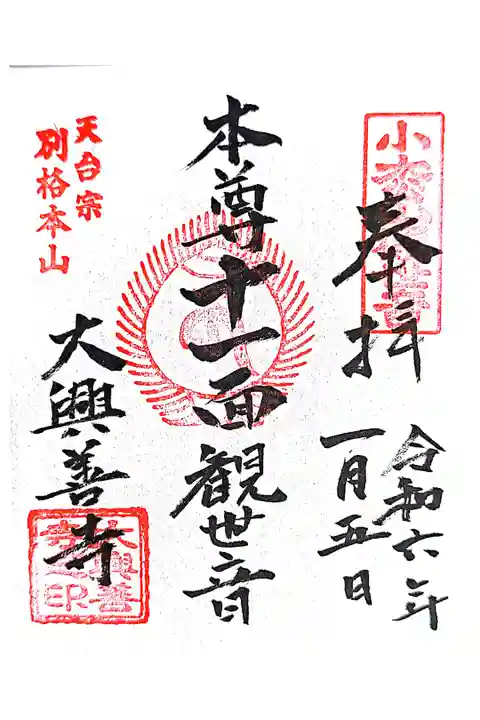 奉拝
令和六年
一月五日
本尊十一面観世音
天台宗
別格本山
大興善寺
大興善
寺之印